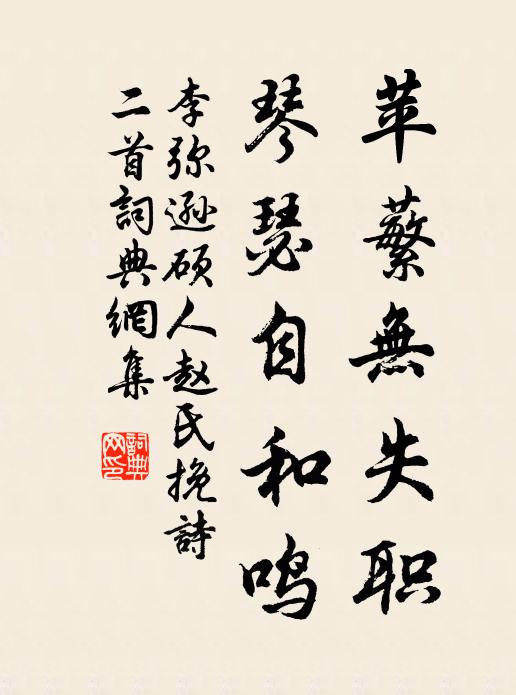 苹蘩無失职
琴瑟自和鸣
李弥遜硕人赵氏挽詩
二首詞典網集
詞典
网印